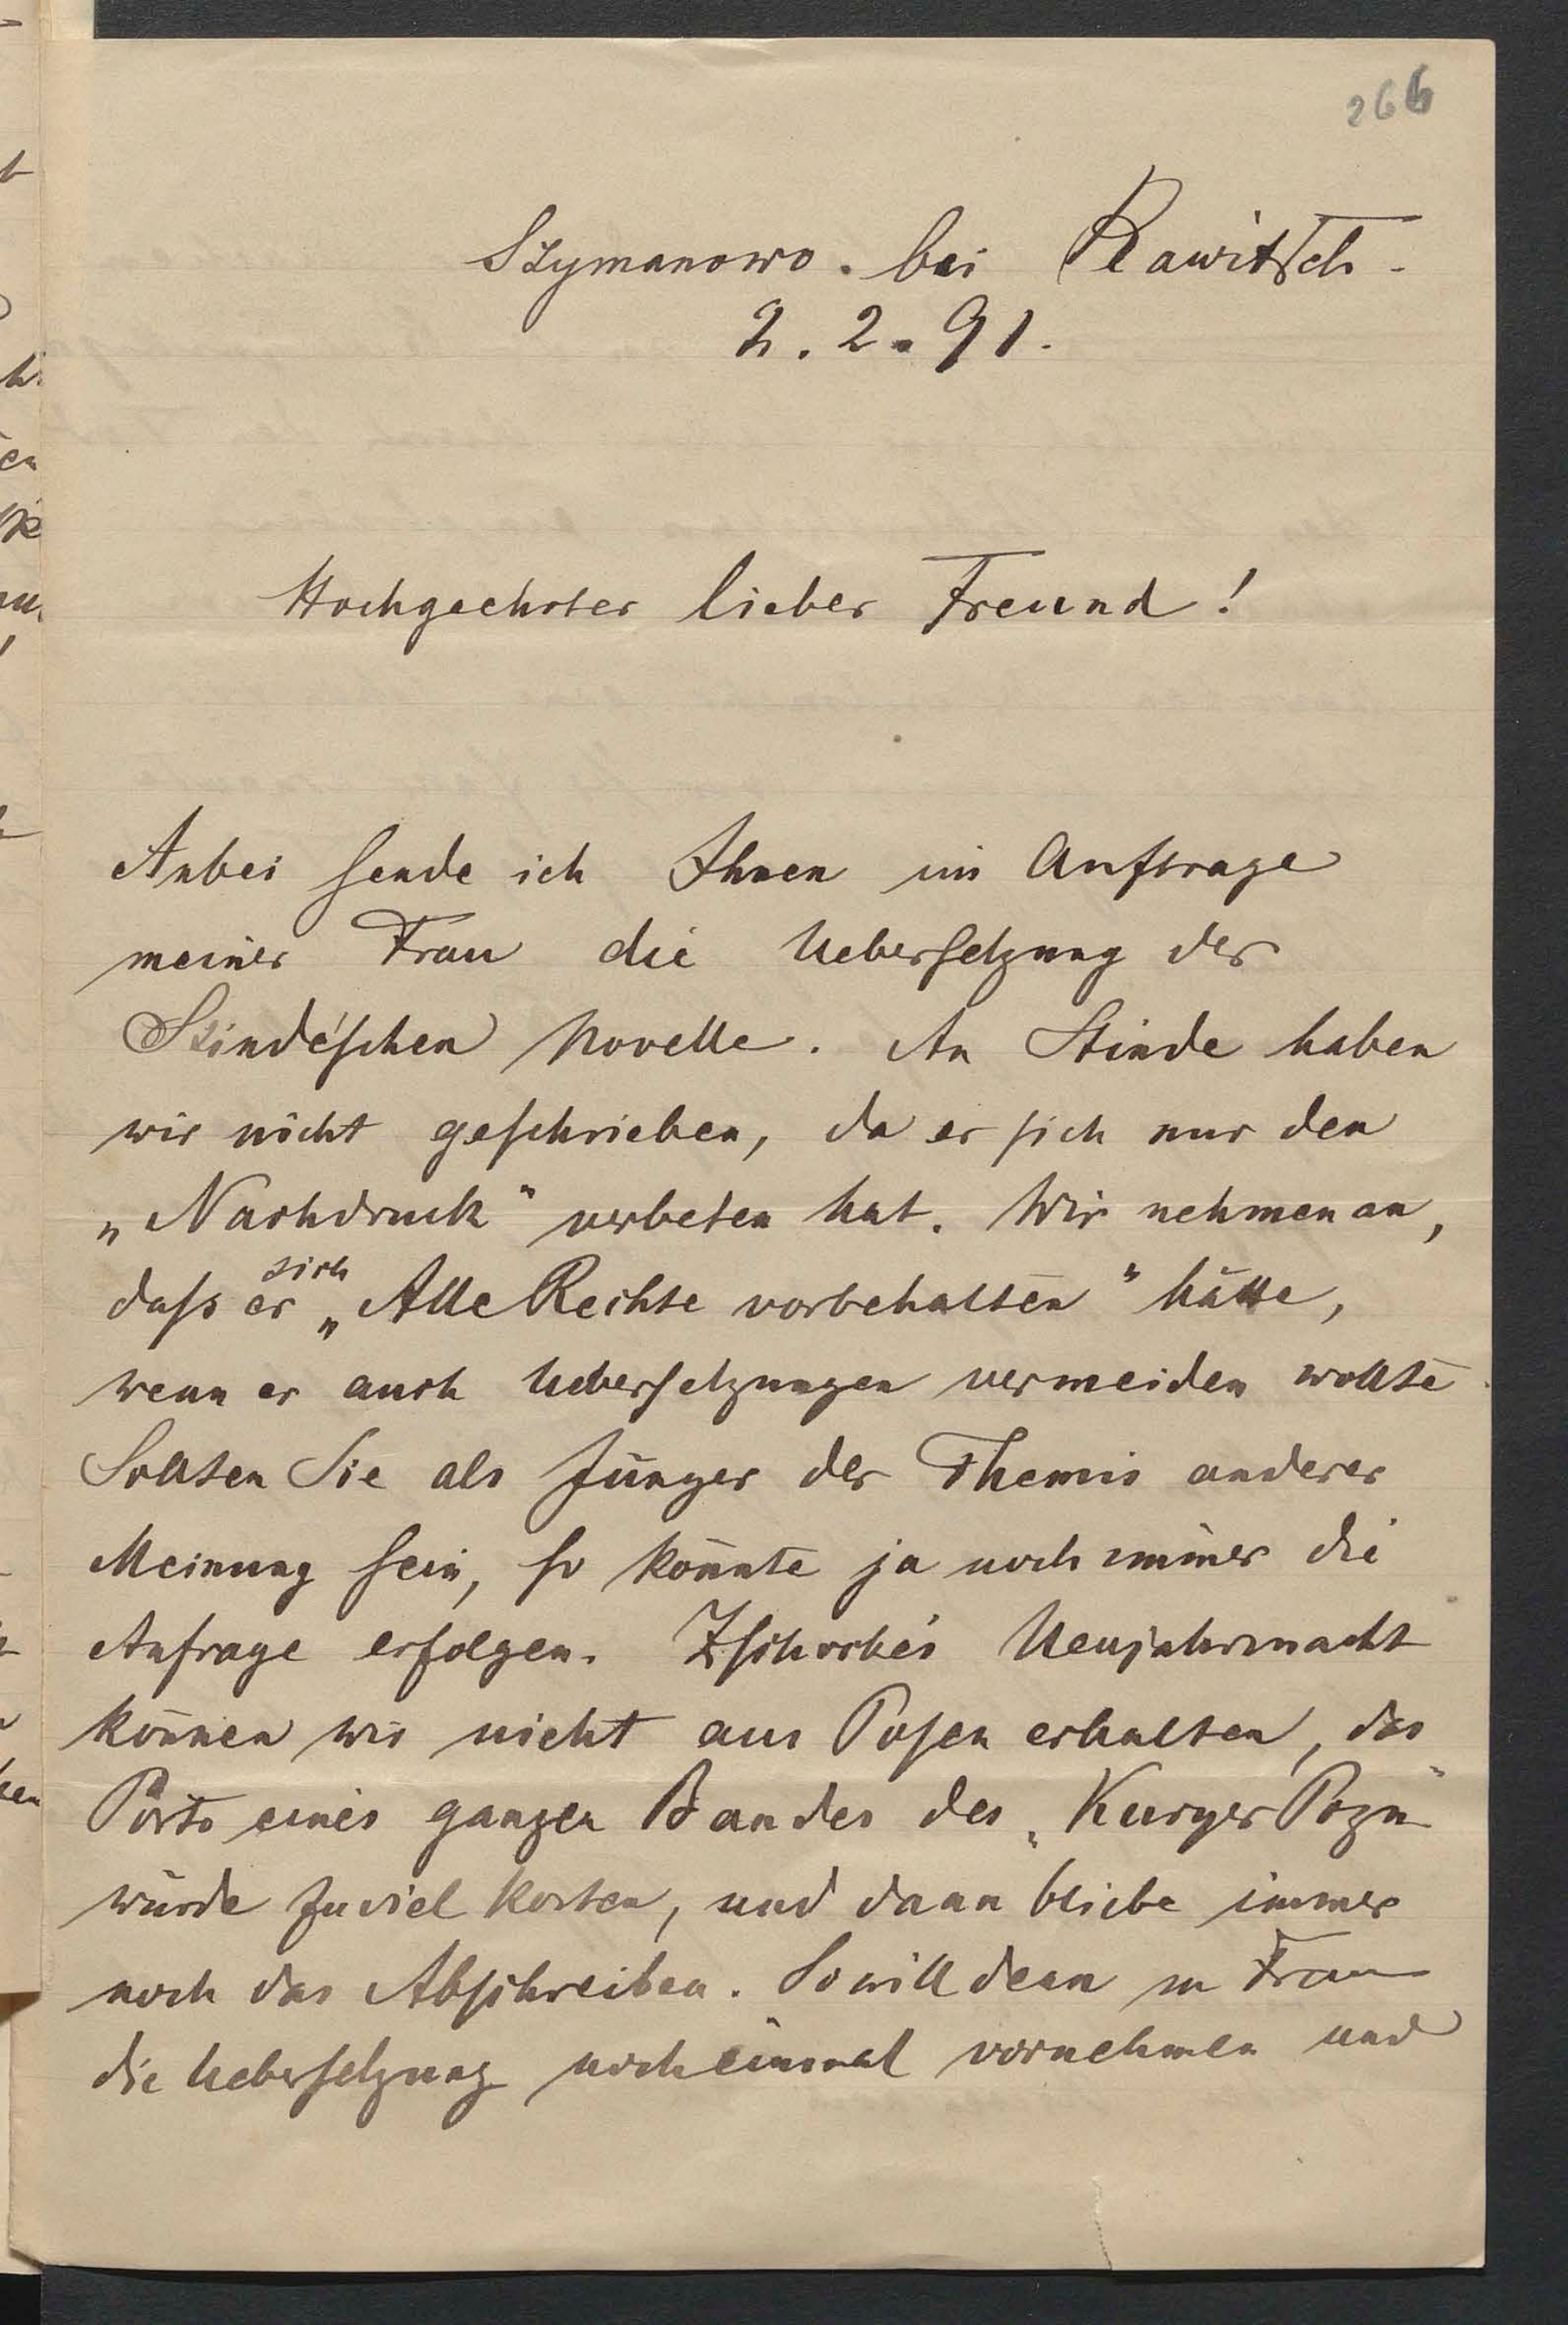 266
Szymanowo. bei Rawitsch.
2. 2. 91.
Hochgeehrter lieber Freund!
Anbei sende ich Ihnen im Auftrage
meiner Frau die Uebersetzung der
Stinde'schen Novelle. An Stinde haben
wir nicht geschrieben, da er sich nur den
„Nachdruck" verbeten hat. Wir nehmen an,
sich
dass er „Alle Rechte vorbehalten" hätte,
wenn er auch Uebersetzungen vermeiden wollte.
Sollten Sie als Jünger der Themis anderer
Meinung sein, so könnte ja noch immer die
Anfrage erfolgen. Zschocke's Neujahrsnacht
können wir nicht aus Posen erhalten, das
Porto eines ganzen Bandes des „Kuryer Pozn"
würde zuviel kosten, und dann bliebe immer
noch das Abschreiben. So will denn m Frau
die Uebersetzung noch einmal vornehmen und